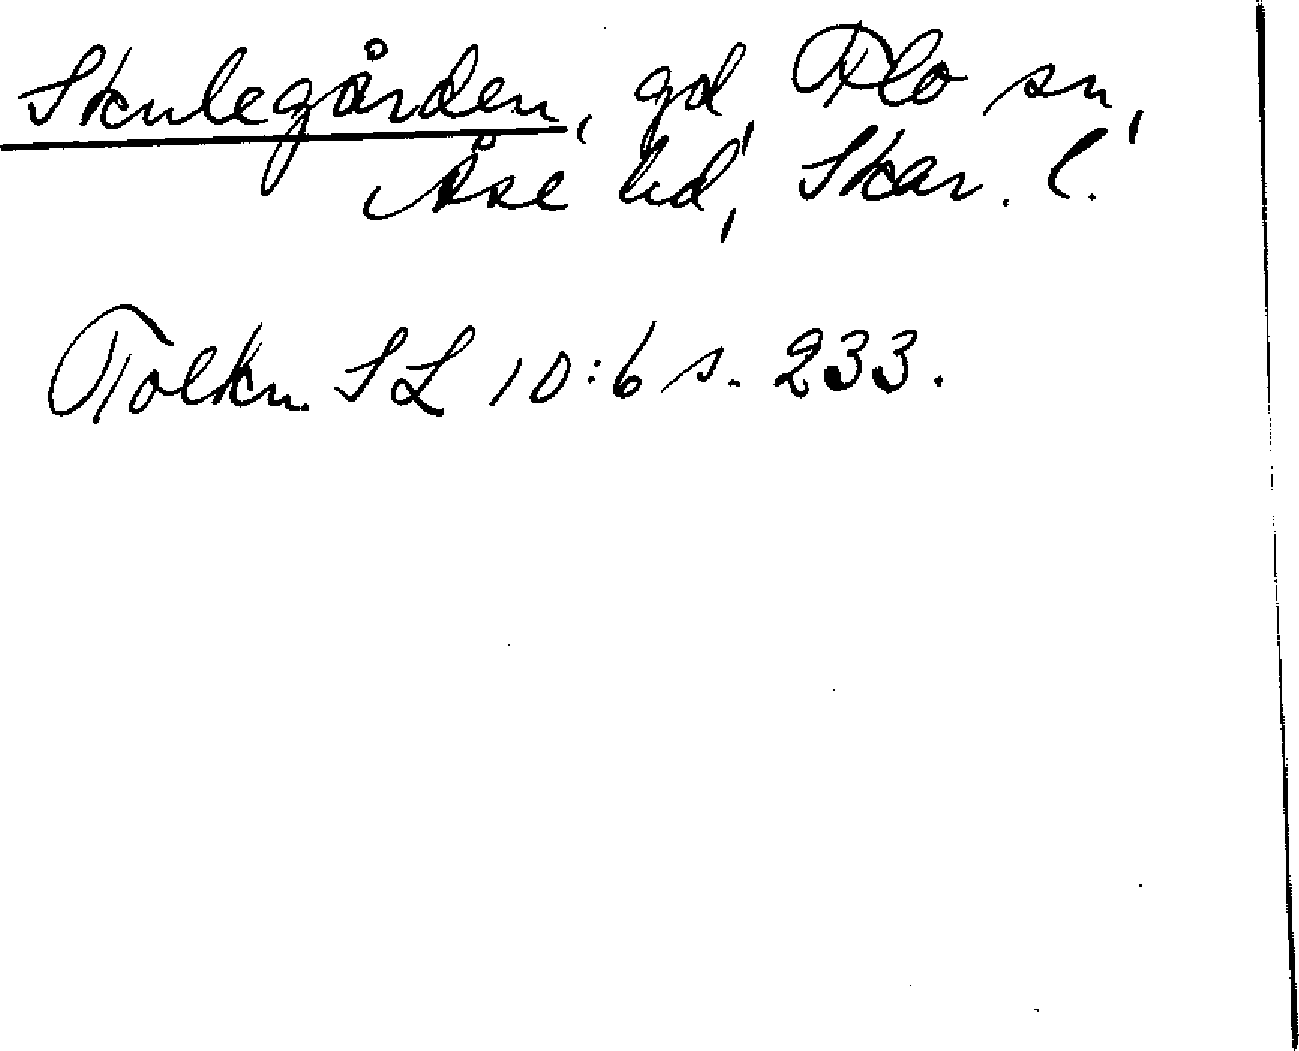 Skulegården, gd, Flo sn,
Åse hd, Skar. l.
Tolkn. SL 10:6 s. 233.